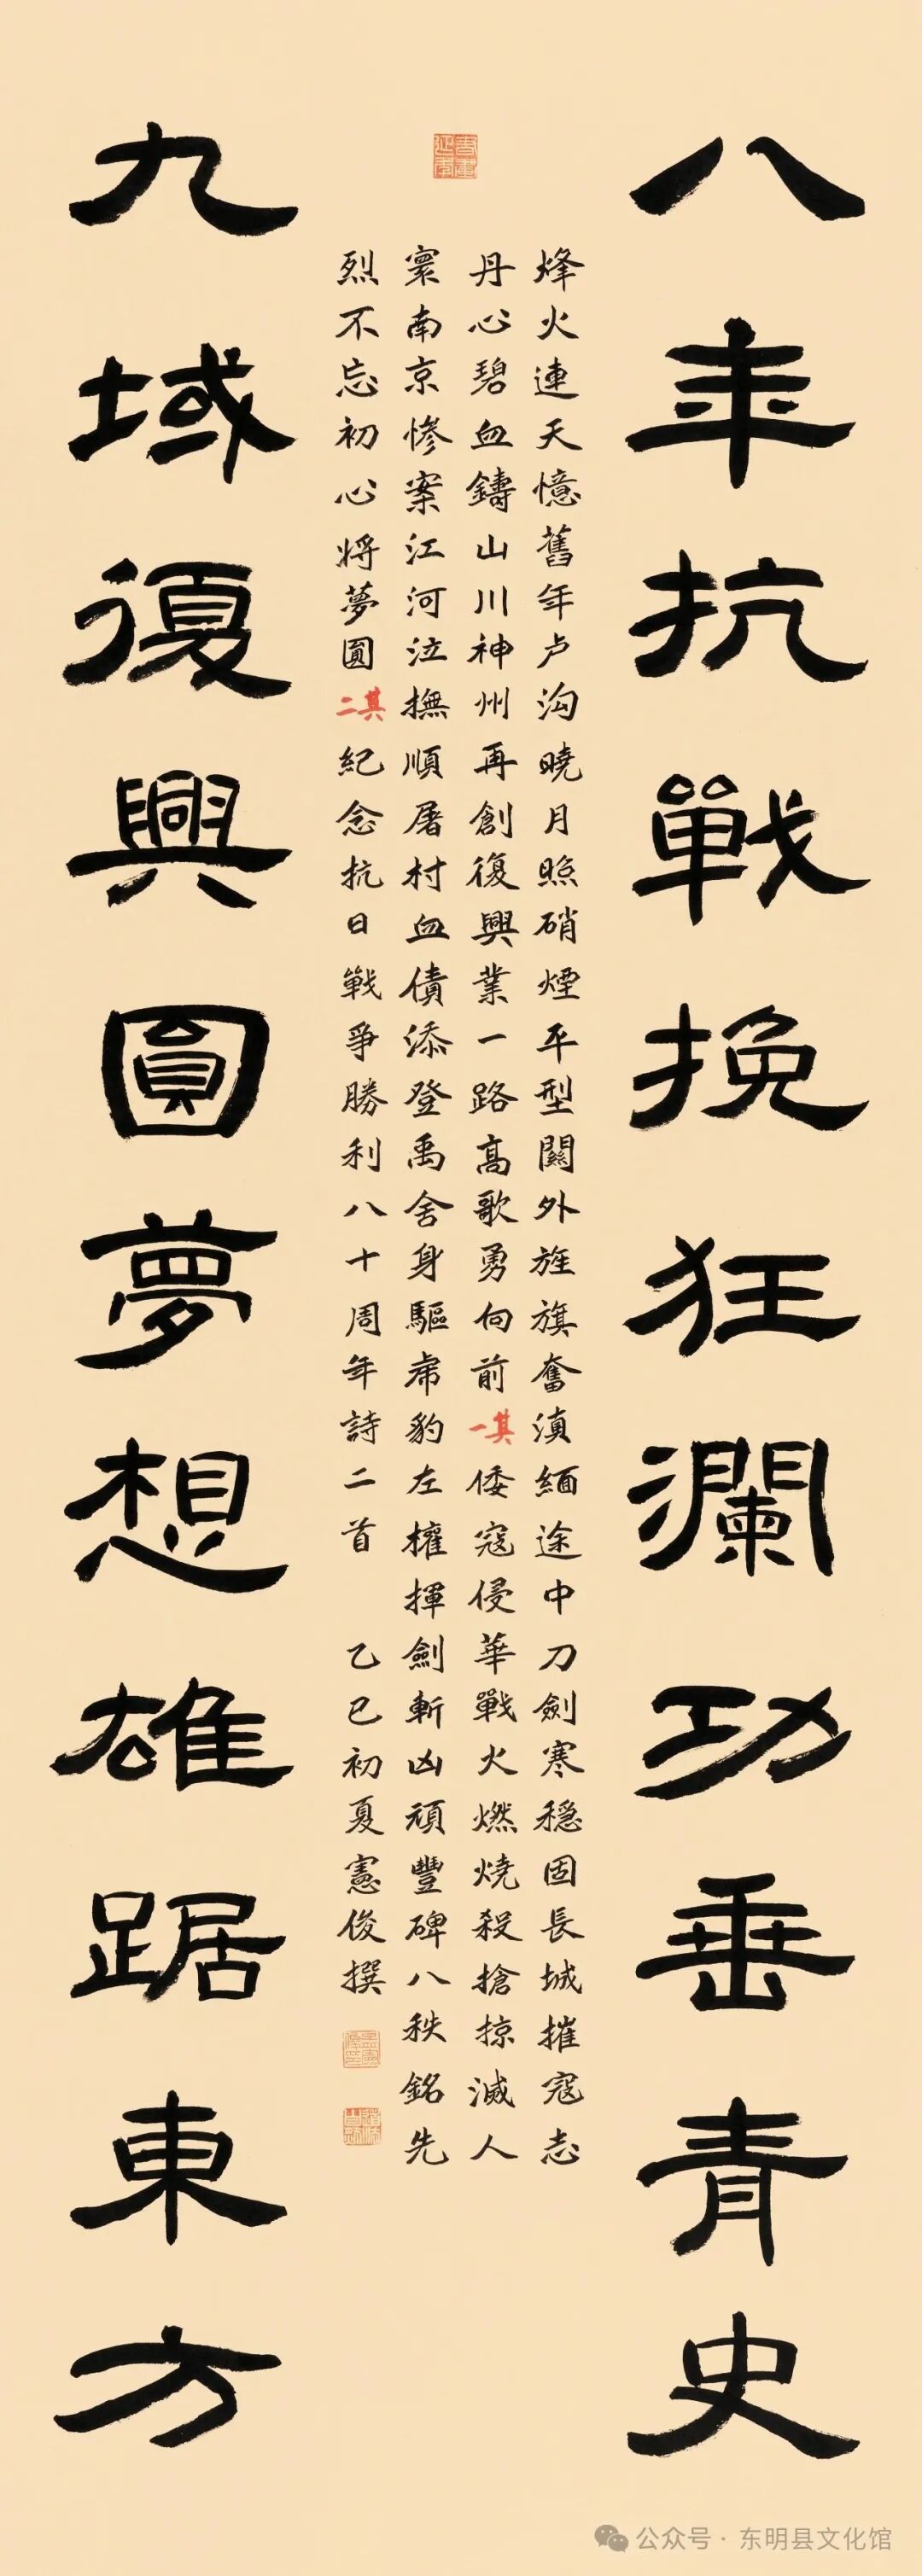 八年抗戰挽狂瀾功垂青史
烽火連天憶舊年卢沟曉月照硝煙平型關外旌旗奮滇緬途中刀劍寒穩固長城摧寇志
丹心碧血鑄山川神州再創復興業一路高歌勇向前其一倭寇侵華戰火燃燒殺搶掠滅人
寰南京慘案江河泣撫順屠村血債添登禹舍身驅虎豹左權揮劍斬凶頑豐碑八秩銘先
烈不忘初心將夢圓其二紀念抗日戰爭勝利八十周年詩二首 乙巳初夏憲俊撰
九域復興圓夢想雄踞東方
公众号·东明县文化馆